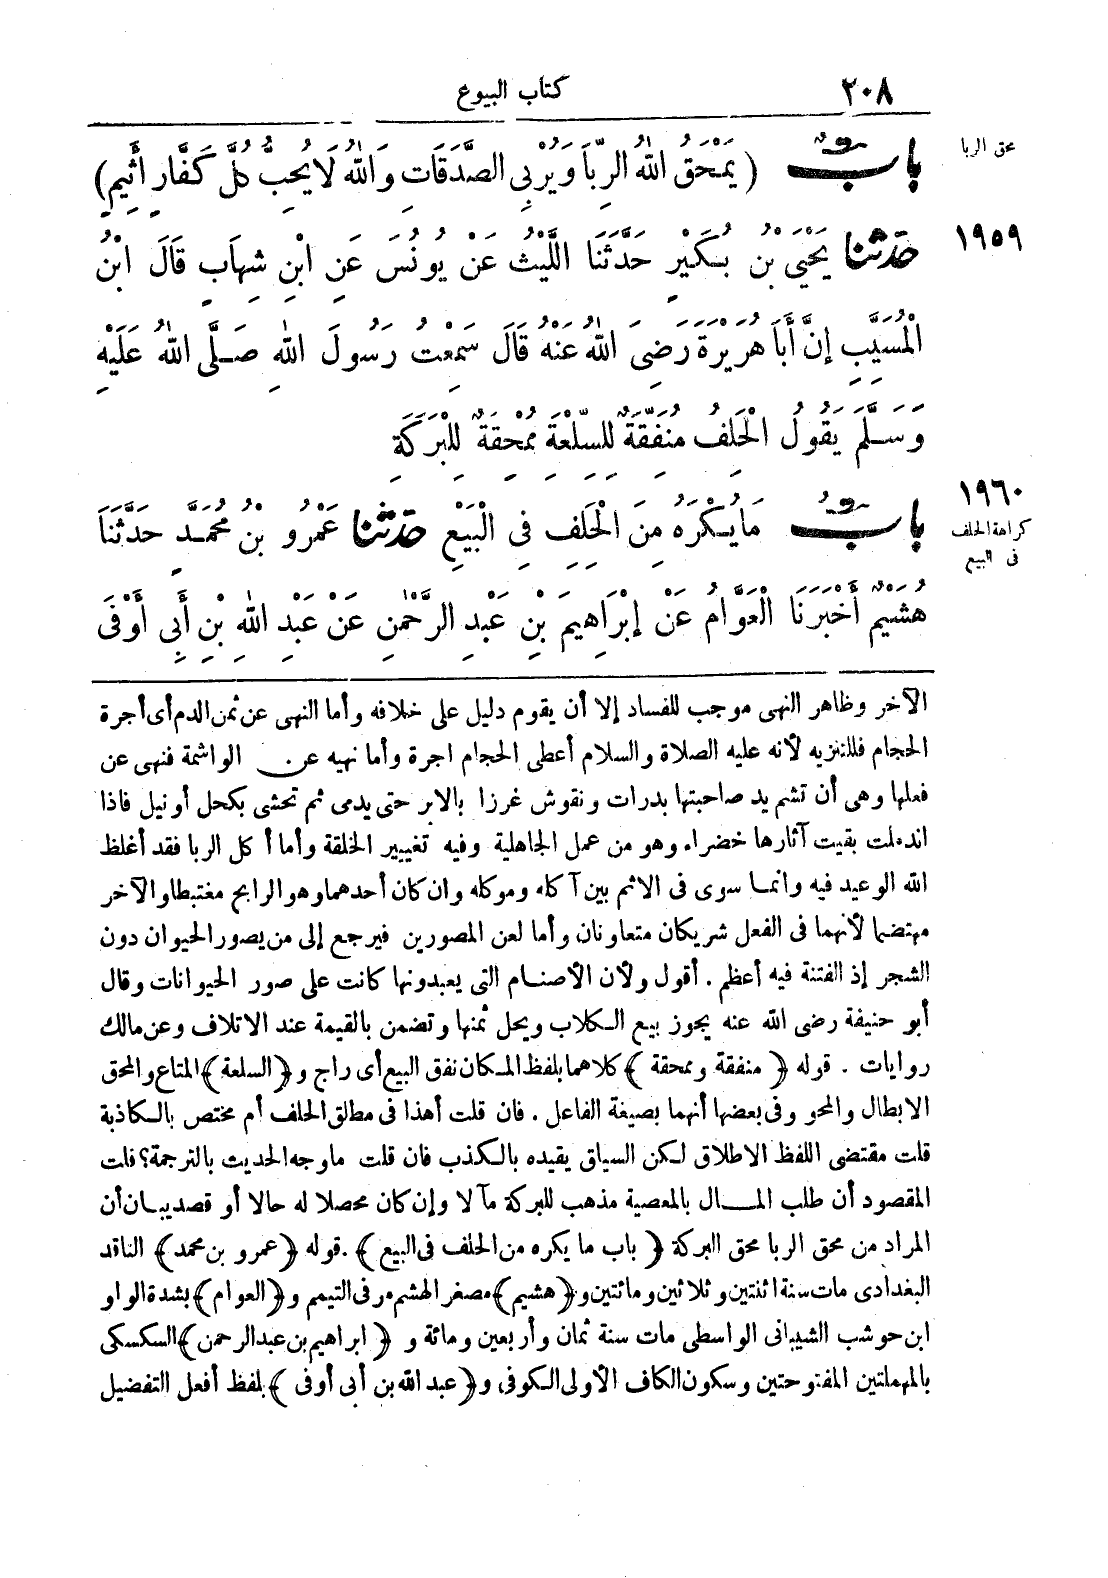 ٢٠٨ كتاب البيوع
محق الربا
بابٌ (يَمْحَقُ اللهُ الرِّبَا وَيُرْبِي الصَّدَقَاتِ وَاللهُ لَا يُحِبُّ كُلَّ كَفَّارٍ أَثِيمٍ)
١٩٥٩
حَدَّثَنَا يَحْيَى بْنُ بُكَيْرٍ حَدَّثَنَا اللَّيْثُ عَنْ يُونُسَ عَنِ ابْنِ شِهَابٍ قَالَ ابْنُ
الْمُسَيِّبِ إِنَّ أَبَا هُرَيْرَةَ رَضِيَ اللهُ عَنْهُ قَالَ سَمِعْتُ رَسُولَ اللهِ صَلَّى اللهُ عَلَيْهِ
وَسَلَّمَ يَقُولُ الْحَلِفُ مُنَفِّقَةٌ لِلسِّلْعَةِ مُمْحِقَةٌ لِلْبَرَكَةِ
١٩٦٠
كراهة الحلف
فى البيع
بابٌ مَا يُكْرَهُ مِنَ الْحَلِفِ فِي الْبَيْعِ حَدَّثَنَا عَمْرُو بْنُ مُحَمَّدٍ حَدَّثَنَا
هُشَيْمٌ أَخْبَرَنَا الْعَوَّامُ عَنْ إِبْرَاهِيمَ بْنِ عَبْدِ الرَّحْمٰنِ عَنْ عَبْدِ اللهِ بْنِ أَبِي أَوْفَى
الآخر وظاهر النهى موجب للفساد إلا أن يقوم دليل على خلافه وأما النهى عن ثمن الدم أى أجرة
الحجام فللتنزيه لأنه عليه الصلاة والسلام أعطى الحجام اجرة وأما نهيه عن الواشمة فنهى عن
فعلها وهى أن تشم يد صاحبتها بدرات ونقوش غرزا بالابر حتى يدمى ثم تحشى بكحل أو نيل فاذا
اندملت بقيت آثارها خضراء وهو من عمل الجاهلية وفيه تغيير الخلقة وأما أكل الربا فقد أغلظ
الله الوعيد فيه وانما سوى فى الاثم بين آكله وموكله وان كان أحدهما وهو الرابح مغتبطا والآخر
مهتضما لأنهما فى الفعل شريكان متعاونان وأما لعن المصورين فيرجع إلى من يصور الحيوان دون
الشجر إذ الفتنة فيه أعظم . أقول ولأن الأصنام التى يعبدونها كانت على صور الحيوانات وقال
أبو حنيفة رضى الله عنه يجوز بيع الكلاب ويحل ثمنها وتضمن بالقيمة عند الاتلاف وعن مالك
روايات . قوله (منفقة وممحقة) كلاهما بلفظ المكان نفق البيع أى راج و(السلعة) المتاع والمحق
الابطال والمحو وفى بعضها أنهما بصيغة الفاعل . فان قلت أهذا فى مطلق الحلف أم مختص بالكاذبة
قلت مقتضى اللفظ الاطلاق لكن السياق يقيده بالكذب فان قلت ما وجه الحديث بالترجمة؟ قلت
المقصود أن طلب المال بالمعصية مذهب للبركة مآلا وإن كان محصلا له حالا أو قصد بيان أن
المراد من محق الربا محق البركة (باب ما يكره من الحلف فى البيع). قوله (عمرو بن محمد) الناقد
البغدادى مات سنة اثنتين وثلاثين ومائتين و(هشيم) مصغر الهشم مر فى التيمم و(العوام) بشدة الواو
ابن حوشب الشيبانى الواسطى مات سنة ثمان وأربعين ومائة و (ابراهيم بن عبد الرحمن) السكسكى
بالمهملتين المفتوحتين وسكون الكاف الأولى الكوفى و(عبد الله بن أبى أوفى) بلفظ أفعل التفضيل